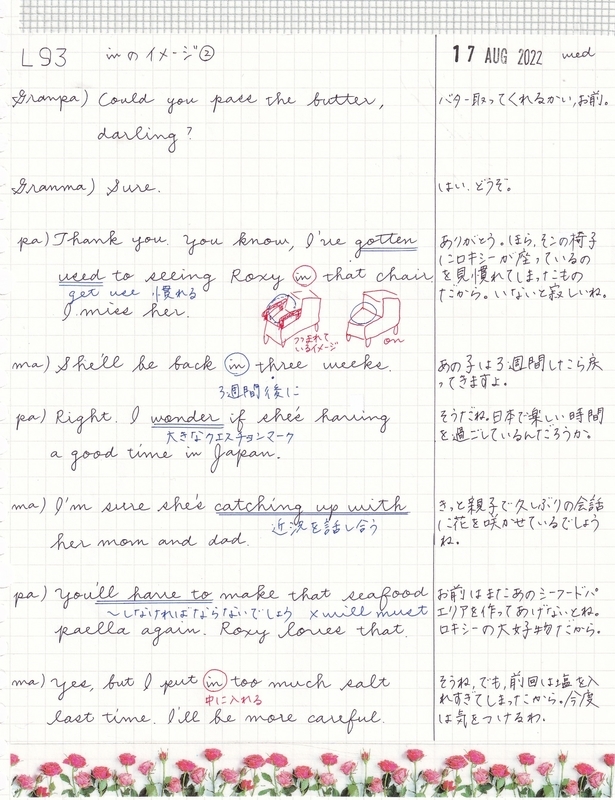 L93 inのイメージ② 17 AUG 2022 wed
Granpa) Could you pass the butter, バター取ってくれるかい,お前。
darling?
Granma) Sure. はい、どうぞ。
pa) Thank you. You know, I've gotten ありがとう。ほら,そこの椅子
にロキシーが座っているの
used to seeing Roxy in that chair. を見慣れてしまったもの
get use 慣れる だから。いないと寂しいね。
I miss her.
つつまれて
いるイメージ
on
ma) She'll be back in three weeks. あの子は3週間したら戻
3週間後に ってきますよ。
pa) Right. I wonder if she's having そうだね。日本で楽しい時間
大きなクエスチョンマーク を過ごしているんだろうか。
a good time in Japan.
ma) I'm sure she's catching up with きっと親子で久しぶりの会話
近況を話し合う に花を咲かせているでしょう
her mom and dad. ね。
pa) You'll have to make that seafood お前はまたあのシーフードパ
〜しなければならないでしょう ×will must エリアを作ってあげないとね。
paella again. Roxy loves that. ロキシーの大好物だから。
ma) Yes, but I put in too much salt そうね,でも,前回は塩を入
中に入れる れすぎてしまったから。今度
last time. I'll be more careful. は気をつけるわ。